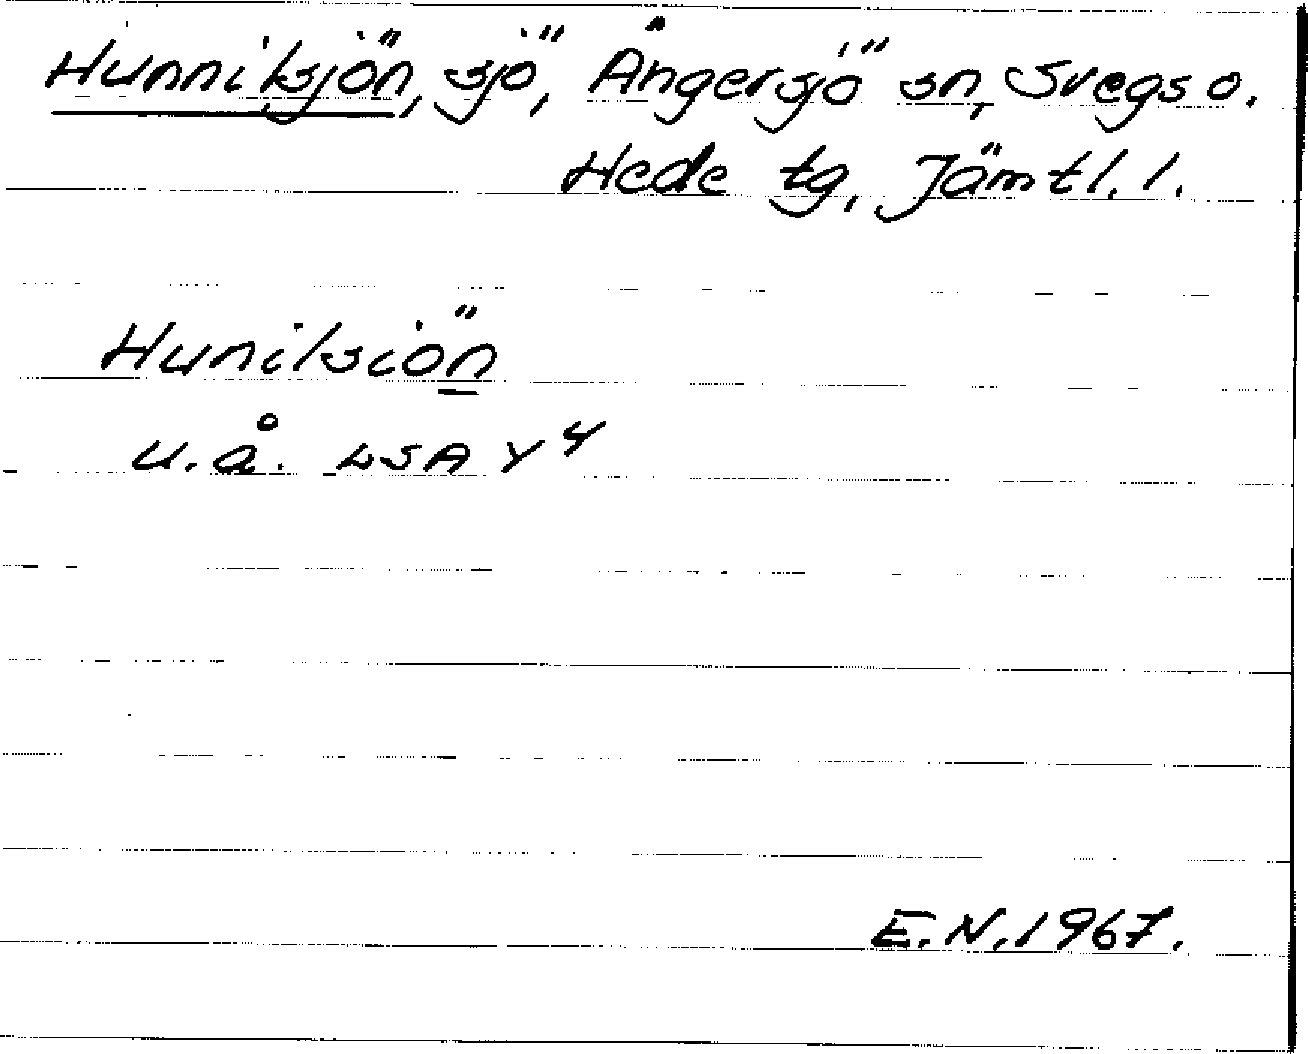 Hunnilsjön, sjö, Ängersjö sn, Svegs o.
Hede tg, Jämtl. l.
Hunilsiön
u.å. LSA Y 4
E.N. 1967.